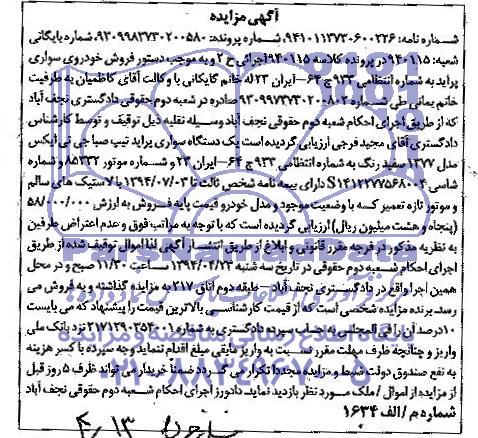 آگهی مزایده
شماره نامه: ۹۴۱۰۱۱۳۷۳۰۶۰۰۲۲۶، شماره پرونده: ۹۳۰۹۹۸۳۷۳۰۲۰۰۵۸۰ شماره بایگانی
شعبه: ۹۴۰۱۱۵ در پرونده کلاسه ۹۴۰۱۱۵ اجرائی ح ۲ و به موجب دستور فروش خودروی سواری
پراید به شماره انتظامی ۹۳۳ ج ۶۴ – ایران ۲۳ له خانم گایکانی با وکالت آقای کاظمیان به طرفیت
خانم یمانی طی شماره ۹۳۰۹۹۷۳۷۳۰۲۰۰۸۰۲ صادره در شعبه دوم حقوقی دادگستری نجف آباد
که از طریق اجرای احکام شعبه دوم حقوقی نجف آباد وسیله نقلیه ذیل توقیف و توسط کارشناس
دادگستری آقای مجید فرجی ارزیابی گردیده است یک دستگاه سواری پراید تیپ صبا جی تی ایکس
مدل ۱۳۷۷ سفید رنگ به شماره انتظامی ۹۳۳ ج ۶۴ – ایران ۲۳ و شماره موتور ۸۵۳۲۲ و شماره
شاسی S۱۴۱۲۲۷۷۵۶۸۰۰۴ دارای بیمه نامه شخص ثالث تا ۱۳۹۴/۰۷/۰۳ با لاستیک های سالم
و موتور تازه تعمیر که با وضعیت موجود و مدل خودرو قیمت پایه فروش به ارزش ۵۸/۰۰۰/۰۰۰
(پنجاه و هشت میلیون ریال) ارزیابی گردیده است که با توجه به مراتب فوق و عدم اعتراض طرفین
به نظریه مذکور در فرجه مقرر قانونی و ابلاغ از طریق انتشار آگهی لذا اموال توقیف شده از طریق
اجرای احکام شعبه دوم حقوقی در تاریخ سه شنبه ۱۳۹۴/۰۴/۲۳ ساعت ۱۱/۳۰ صبح و در محل
همین اجرا واقع در دادگستری نجف آباد – طبقه دوم اتاق ۲۱۷ به مزایده گذاشته و به فروش می
رسد. برنده مزایده شخصی است که از قیمت کارشناسی بالاترین قیمت را پیشنهاد که می بایست
۱۰ درصد آن را فی المجلس به حساب سپرده دادگستری به شماره ۲۱۷۱۲۹۰۳۵۴۰۰۱ نزد بانک ملی
واریز و چنانچه ظرف مهلت مقرر نسبت به واریز مابقی مبلغ اقدام ننماید وجه سپرده با کسر هزینه
به نفع صندوق دولت ضبط و مزایده مجددا تکرار می گردد ضمنا خریدار می تواند ظرف ۵ روز قبل
از مزایده از اموال / ملک مورد نظر بازدید نماید. دادورز اجرای احکام شعبه دوم حقوقی نجف آباد
شماره م/الف ۱۶۳۴